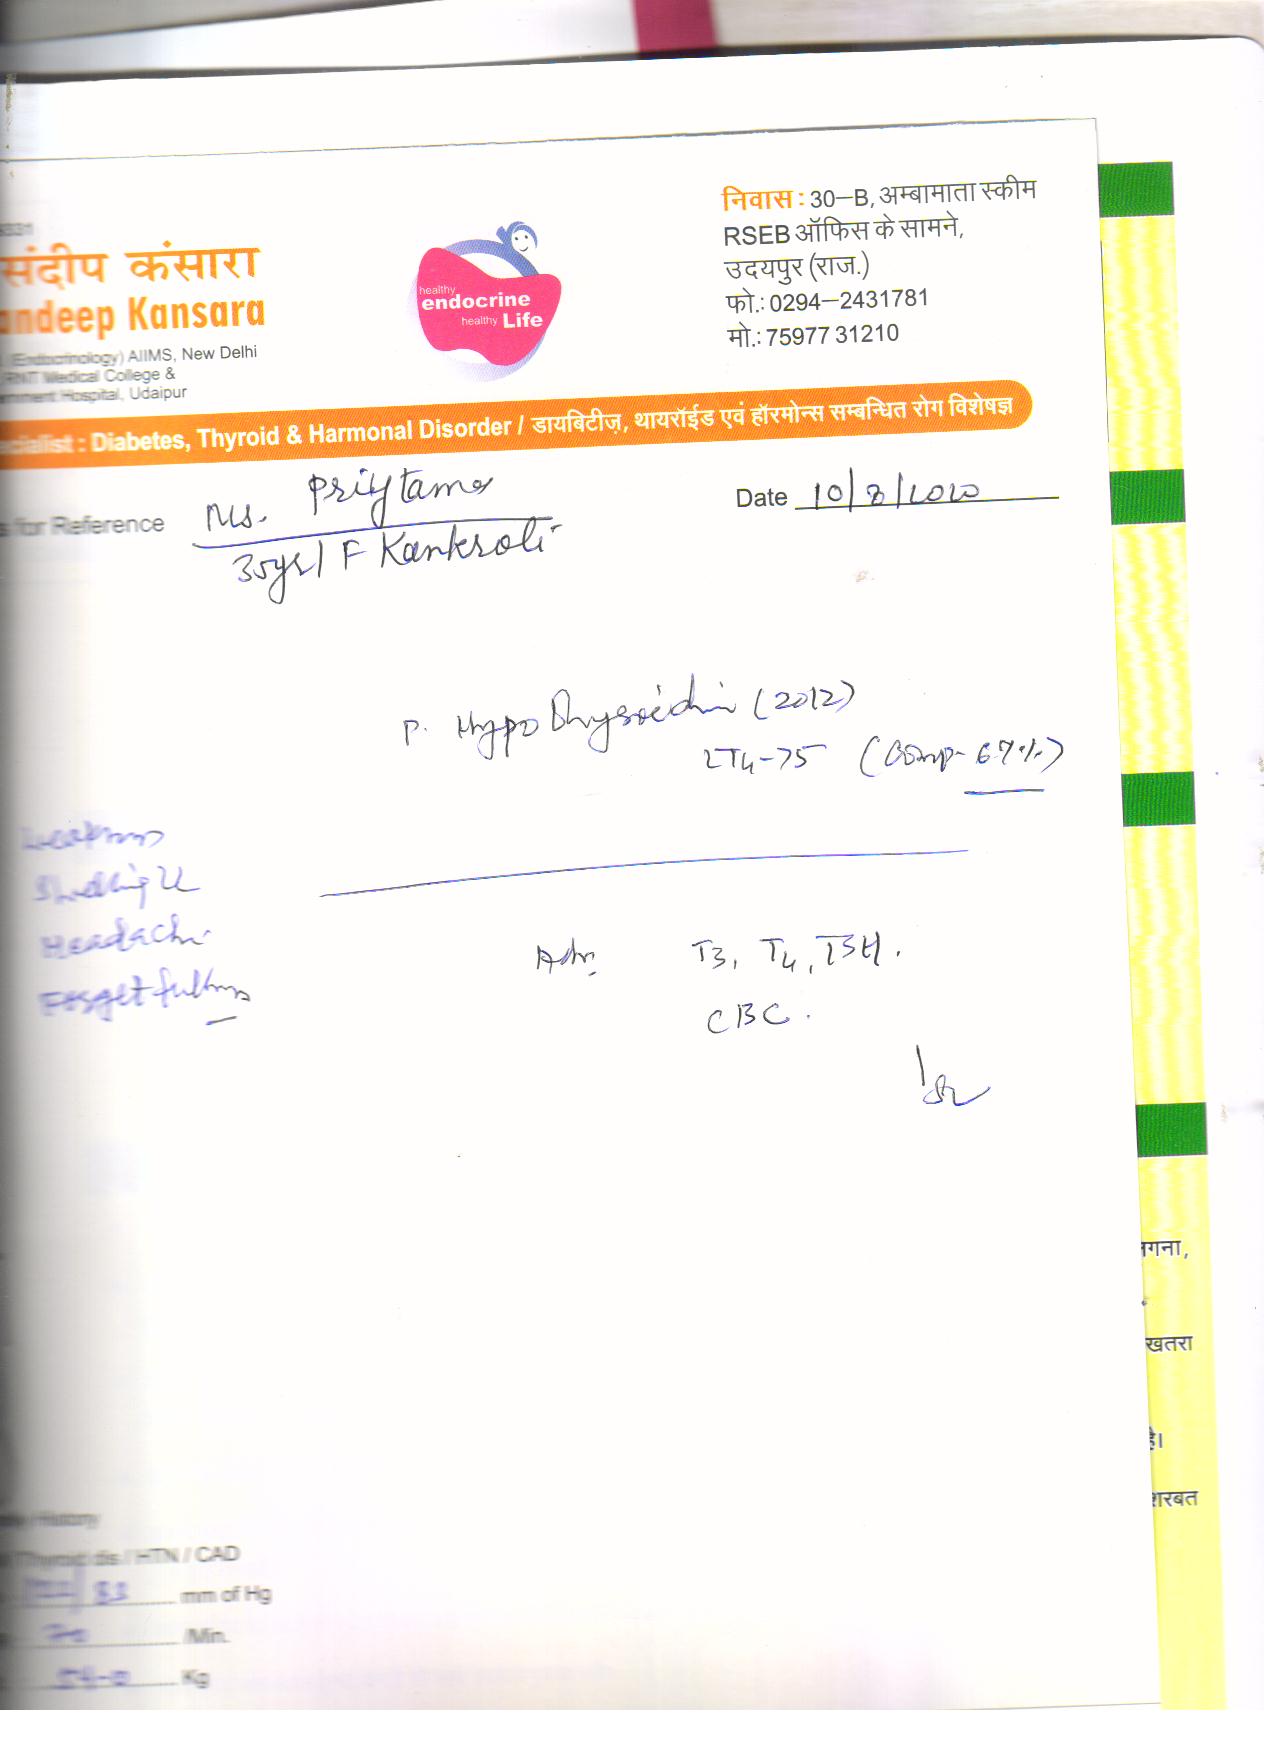 संदीप कंसारा
ndeep Kansara
(Endocrinology) AIIMS, New Delhi
RNT Medical College &
ernment Hospital, Udaipur
healthy
endocrine
healthy Life
निवास : 30–B, अम्बामाता स्कीम
RSEB ऑफिस के सामने,
उदयपुर (राज.)
फो.: 0294–2431781
मो.: 75977 31210
ecialist : Diabetes, Thyroid & Harmonal Disorder / डायबिटीज़, थायरॉईड एवं हॉरमोन्स सम्बन्धित रोग विशेषज्ञ
for Reference Ms. Priytama
Date 10/8/2020
35yrs/F Kankroli
P. Hypothyroidism (2012)
LT4-75 (Comp- 67%)
Weakness
Headache
Forgetfullness
Adv. T3, T4, TSH.
CBC.
गना,
खतरा
है।
शरबत
History
Thyroid dis / HTN / CAD
mm of Hg
70 /Min.
54-0 Kg